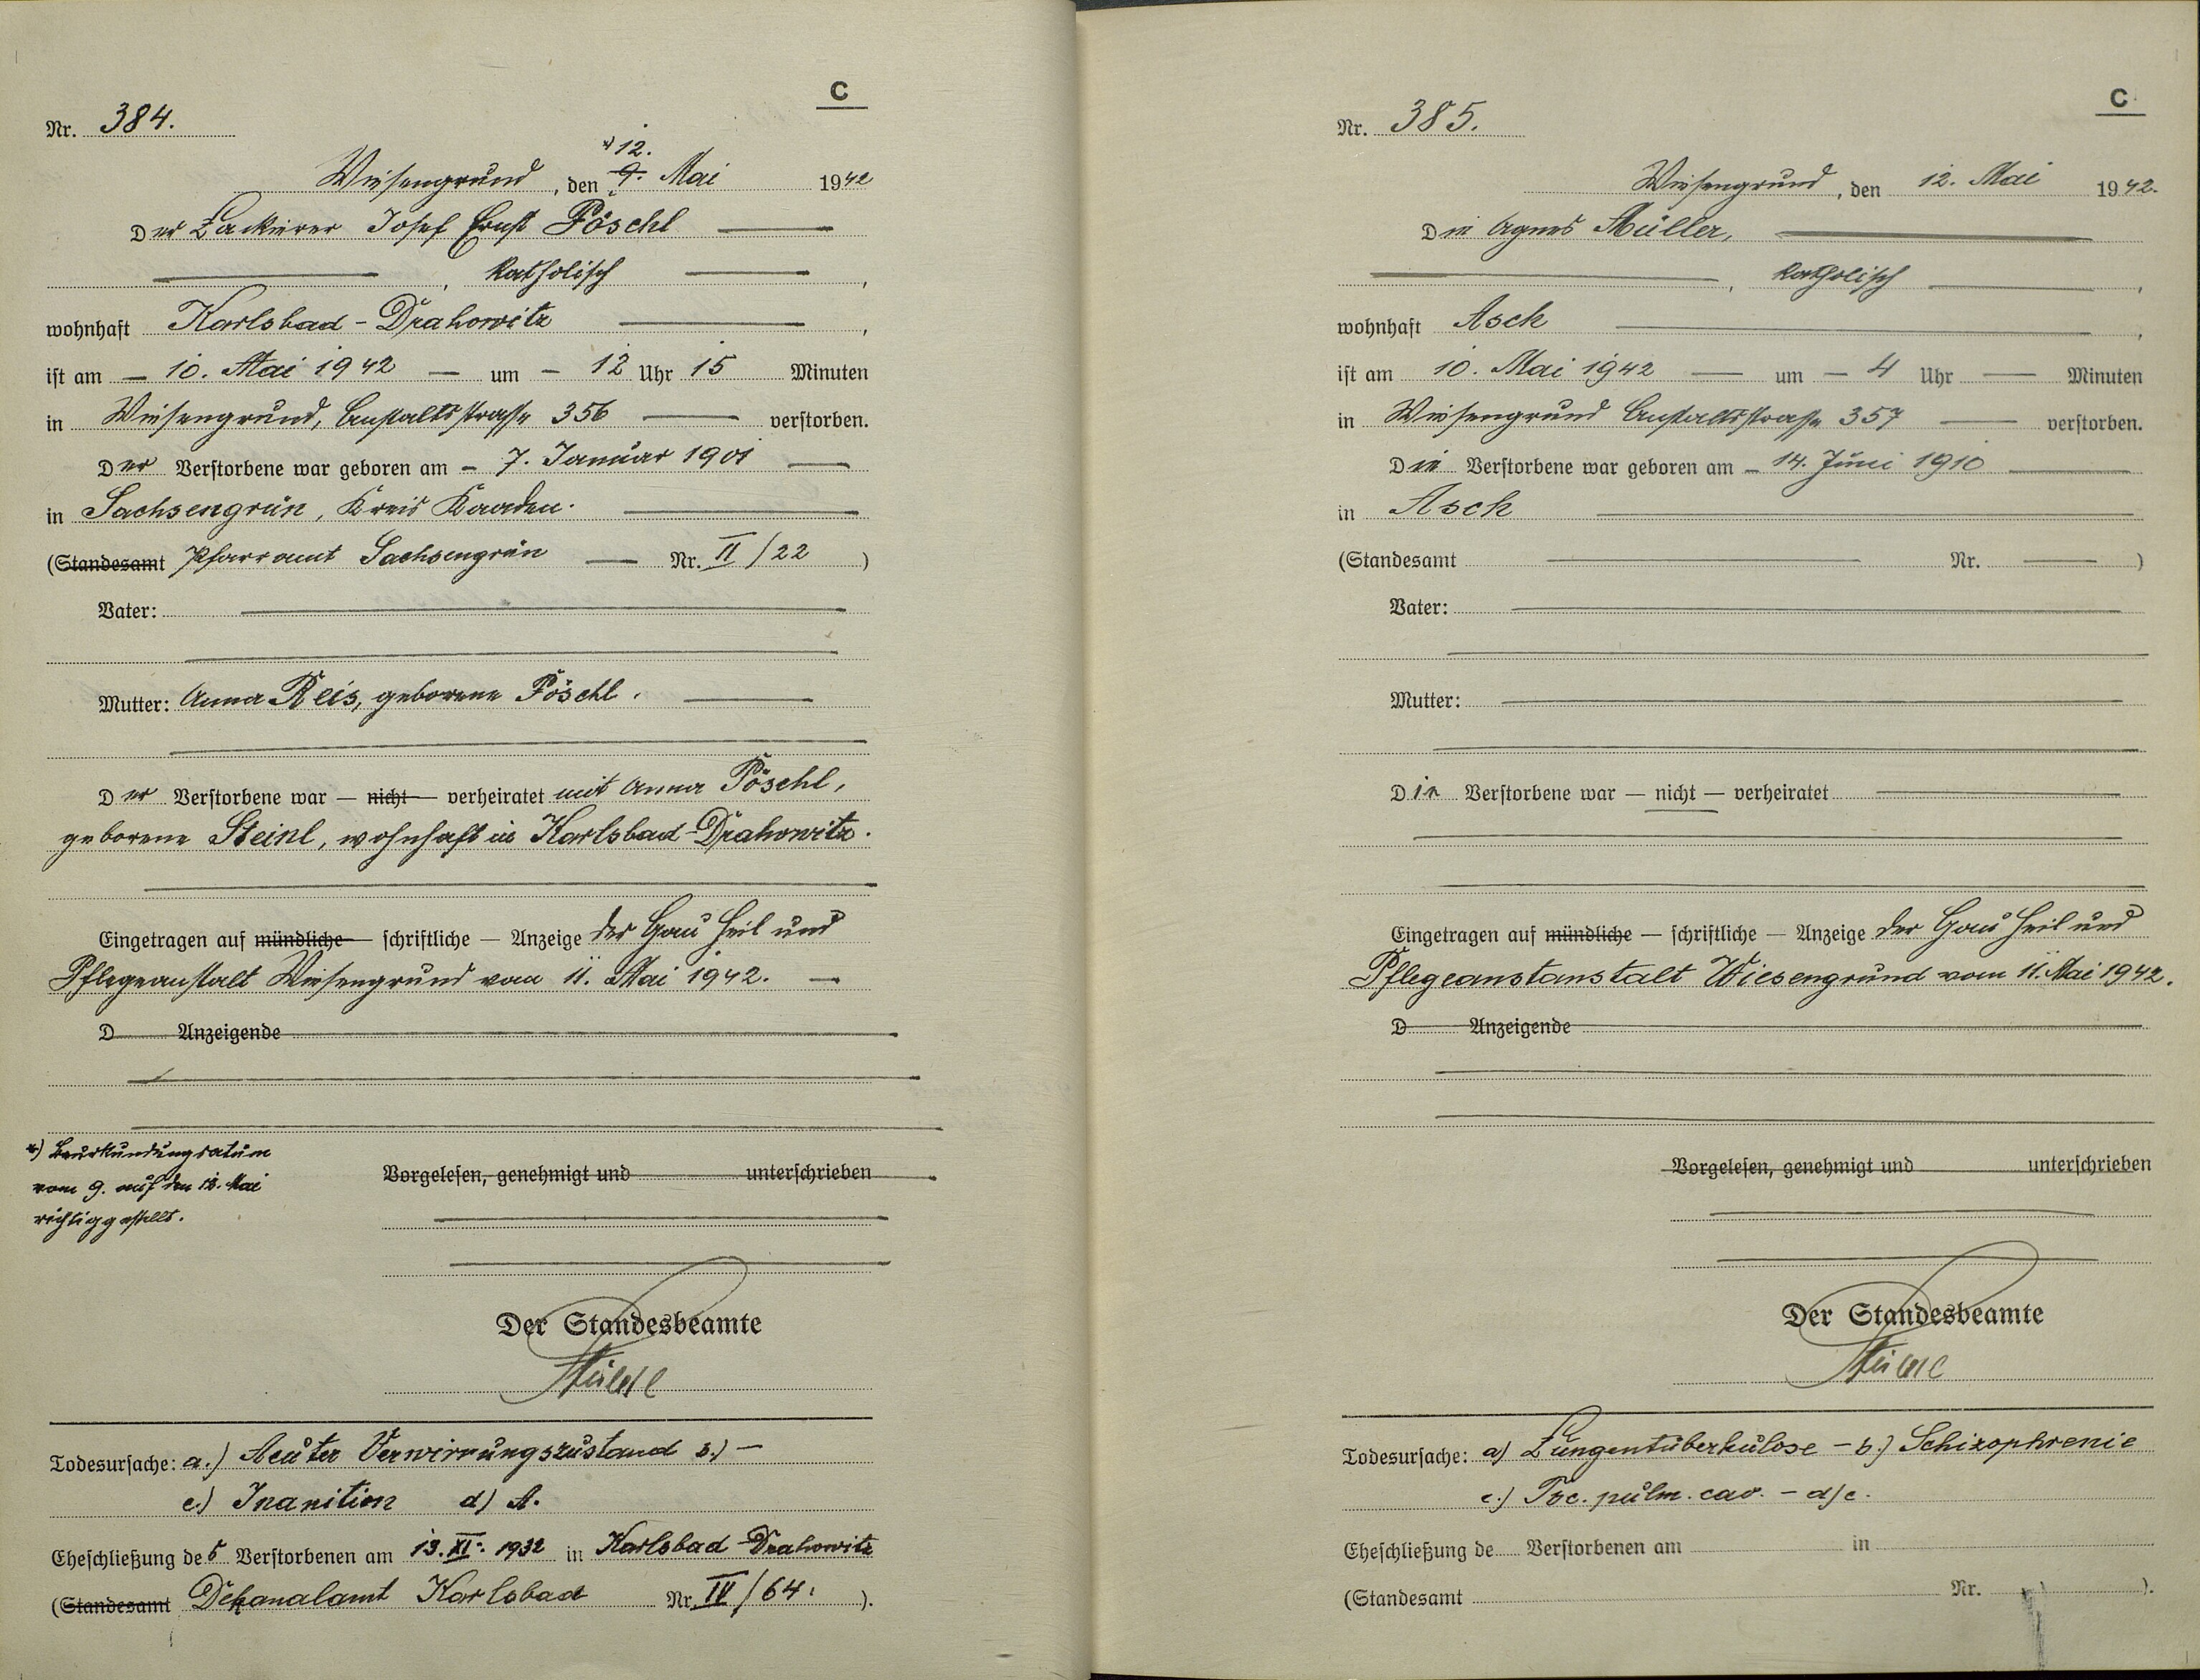 C
Nr. 384.
*) 12.
Wiesengrund, den 9. Mai 1942
Der Lackierer Josef Ernst Pöschl
katholisch,
wohnhaft Karlsbad - Drahowitz,
ist am 10. Mai 1942 um 12 Uhr 15 Minuten
in Wiesengrund, Anstaltsstrasse 356 verstorben.
Der Verstorbene war geboren am 7. Januar 1901
in Sachsengrün, Kreis Kaaden.
(Standesamt Pfarramt Sachsengrün Nr. II/22)
Vater:
Mutter: Anna Reis, geborene Pöschl.
Der Verstorbene war — nicht — verheiratet mit Anna Pöschl,
geborene Steinl, wohnhaft in Karlsbad-Drahowitz.
Eingetragen auf mündliche — schriftliche — Anzeige der Gau Heil und
Pflegeanstalt Wiesengrund vom 11. Mai 1942.
D Anzeigende
*) Beurkundungsdatum
vom 9. auf den 12. Mai
richtiggestellt.
Vorgelesen, genehmigt und unterschrieben
Der Standesbeamte
Todesursache: a.) Acuter Verwirrungszustand b.) —
c.) Inanition d) A.
Eheschließung des Verstorbenen am 13. XI. 1932 in Karlsbad Drahowitz
(Standesamt Dekanalamt Karlsbad Nr. IV/64.).
C
Nr. 385.
Wiesengrund, den 12. Mai 1942.
Die Agnes Müller,
katholisch,
wohnhaft Asch,
ist am 10. Mai 1942 um 4 Uhr — Minuten
in Wiesengrund Anstaltsstrasse 357 verstorben.
Die Verstorbene war geboren am 14. Juni 1910
in Asch
(Standesamt Nr. )
Vater:
Mutter:
Die Verstorbene war — nicht — verheiratet
Eingetragen auf mündliche — schriftliche — Anzeige der Gau Heil und
Pflegeanstanstalt Wiesengrund vom 11. Mai 1942.
D Anzeigende
Vorgelesen, genehmigt und unterschrieben
Der Standesbeamte
Todesursache: a) Lungentuberkulose - b.) Schizophrenie
c.) Tbc. pulm. cav. - d) c.
Eheschließung de Verstorbenen am in
(Standesamt Nr. ).